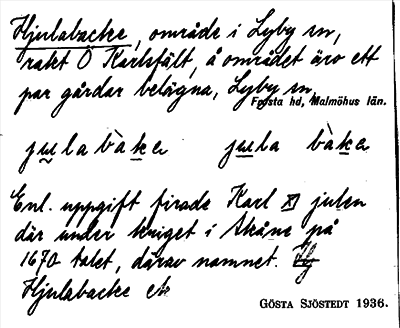 Hjulabacke, område i Lyby sn,
rakt Ö Karlsfält, å området äro ett
par gårdar belägna, Lyby sn,
Frosta hd, Malmöhus län.
julabàka jula bàka
Enl. uppgift firade Karl XI julen
där under kriget i Skåne på
1670 talet, därav namnet.
Hjulabacke
GÖSTA SJÖSTEDT 1936.